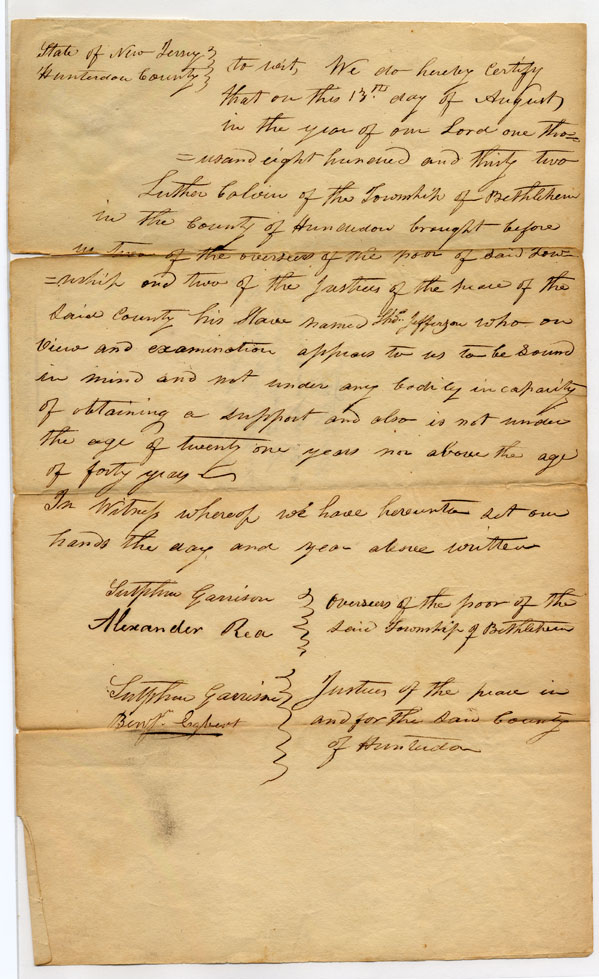 State of New Jersey
Hunterdon County
to wit, We do hereby Certify
that on this 13th day of August
in the year of our Lord one tho=
=usand eight hundred and thirty two
Luther Colvin of the Township of Bethlehem
in the County of Hunterdon brought before
us two of the overseers of the poor of said Tow=
=nship and two of the Justices of the peace of the
said County his Slave named Thos. Jefferson who on
view and examination appears to us to be sound
in mind and not under any bodily incapacity
of obtaining a support and also is not under
the age of twenty one years nor above the age
of forty years
In Witness whereof we have hereunto set our
hands the day and year above written
Sutphin Garrison
Alexander Rea
Overseers of the poor of the
said Township of Bethlehem
Sutphin Garrison
Benjn.
Justices of the peace in
and for the said County
of Hunterdon